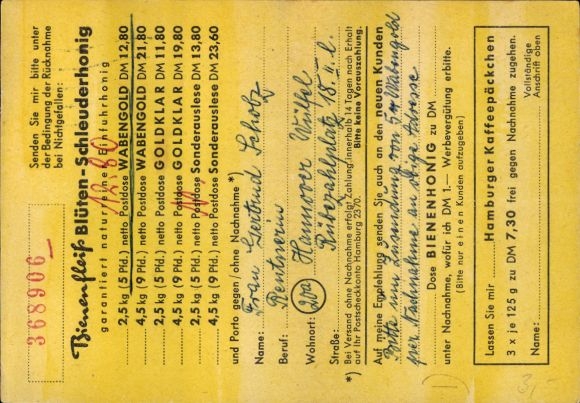 368906
Senden Sie mir bitte unter
der Bedingung der Rücknahme
bei Nichtgefallen:
Bienenfleiß Blüten-Schleuderhonig
garantiert naturreine Einfuhrhonig
2,5 kg (5 Pfd.) netto Postdose WABENGOLD DM 12,80
4,5 kg (9 Pfd.) netto Postdose WABENGOLD DM 21,80
2,5 kg (5 Pfd.) netto Postdose GOLDKLAR DM 11,80
4,5 kg (9 Pfd.) netto Postdose GOLDKLAR DM 19,80
2,5 kg (5 Pfd.) netto Postdose Sonderauslese DM 13,80
4,5 kg (9 Pfd.) netto Postdose Sonderauslese DM 23,60
und Porto gegen/ohne Nachnahme *)
Name: Frau Gertrud Scholz
Beruf: Rentnerin
Wohnort: 20a Hannover Wülfel
Straße: Rübezahlplatz 18 II. l.
*) Bei Versand ohne Nachnahme erfolgt Zahlung innerhalb 14 Tagen nach Erhalt
auf Ihr Postscheckkonto Hamburg 2370. Bitte keine Vorauszahlung.
Auf meine Empfehlung senden Sie auch an den neuen Kunden
Bitte um Zusendung von 5 Wabengold
per Nachnahme an obige Adresse
Dose BIENENHONIG zu DM
unter Nachnahme, wofür ich DM 1.— Werbevergütung erbitte.
(Bitte nur einen Kunden aufzugeben)
Lassen Sie mir Hamburger Kaffeepäckchen
3 x je 125 g zu DM 7,30 frei gegen Nachnahme zugehen.
Name:
Vollständige
Anschrift oben
3,-